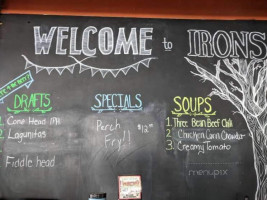 WELCOME to IRONS
DRAFTS
Lagunitas
Fiddle head
SPECIALS
Perch $12
Fry!!
SOUPS
1. Three Bean Beef Chili
2. Chicken Corn Chowder
3. Creamy Tomato
menupix